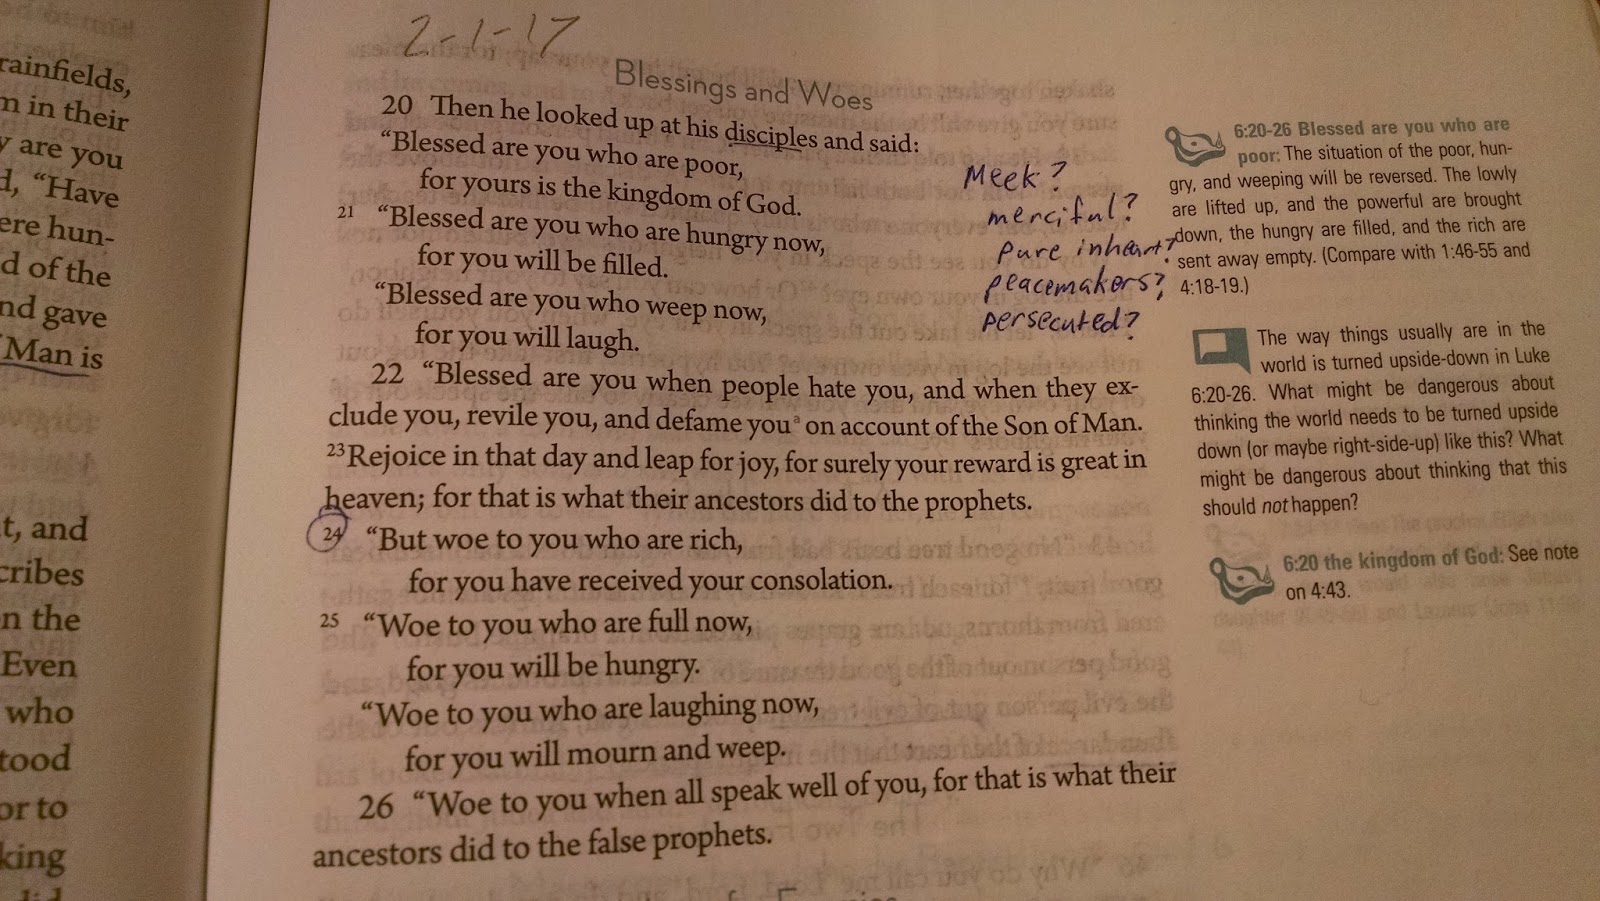 rainfields,
n in their
y are you
d, “Have
ere hun-
d of the
nd gave
Man is
t, and
cribes
n the
Even
who
tood
or to
king
did
2-1-17
Blessings and Woes
20 Then he looked up at his disciples and said:
“Blessed are you who are poor,
for yours is the kingdom of God.
21 “Blessed are you who are hungry now,
for you will be filled.
“Blessed are you who weep now,
for you will laugh.
22 “Blessed are you when people hate you, and when they ex-
clude you, revile you, and defame youᵃ on account of the Son of Man.
23 Rejoice in that day and leap for joy, for surely your reward is great in
heaven; for that is what their ancestors did to the prophets.
24 “But woe to you who are rich,
for you have received your consolation.
25 “Woe to you who are full now,
for you will be hungry.
“Woe to you who are laughing now,
for you will mourn and weep.
26 “Woe to you when all speak well of you, for that is what their
ancestors did to the false prophets.
Meek?
merciful?
pure in heart?
peacemakers?
persecuted?
6:20-26 Blessed are you who are
poor: The situation of the poor, hun-
gry, and weeping will be reversed. The lowly
are lifted up, and the powerful are brought
down, the hungry are filled, and the rich are
sent away empty. (Compare with 1:46-55 and
4:18-19.)
The way things usually are in the
world is turned upside-down in Luke
6:20-26. What might be dangerous about
thinking the world needs to be turned upside
down (or maybe right-side-up) like this? What
might be dangerous about thinking that this
should not happen?
6:20 the kingdom of God: See note
on 4:43.